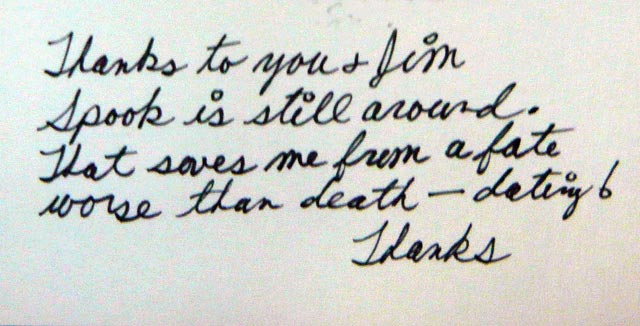 Thanks to you & Jim
Spook is still around.
That saves me from a fate
worse than death — dating!
Thanks